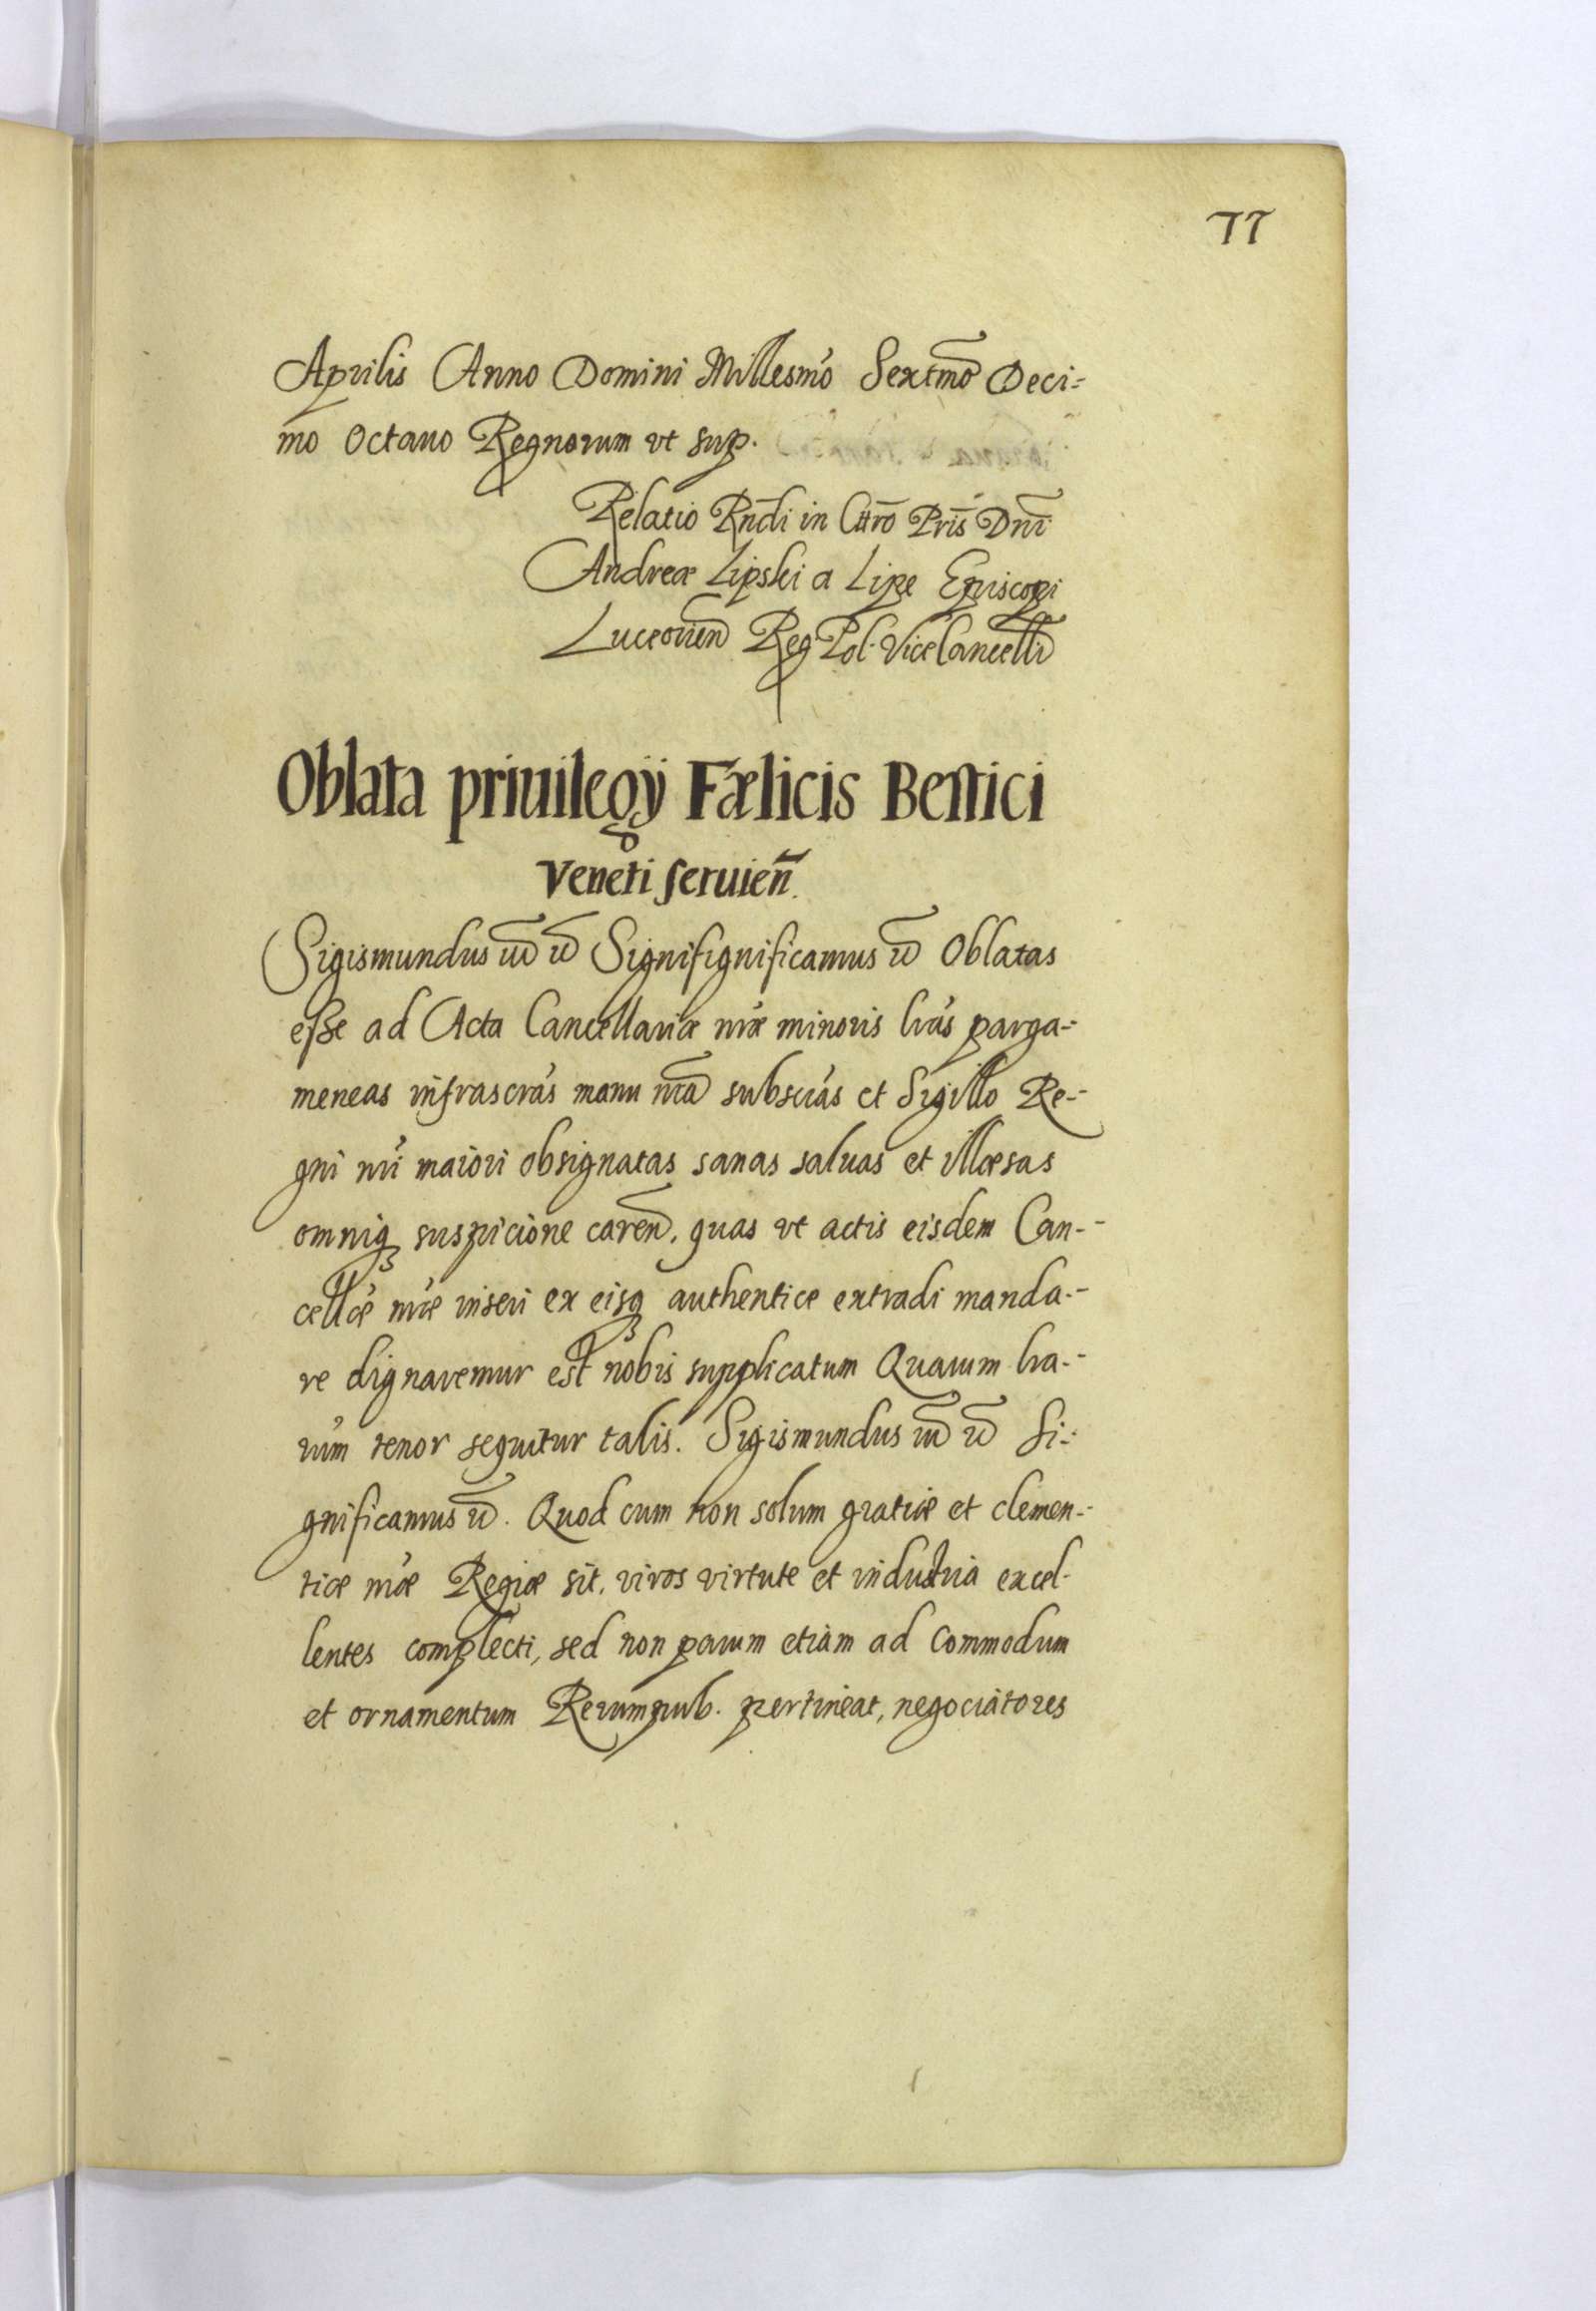 77
Aprilis Anno Domini Millesmo Sextmo Deci-
mo Octauo Regnorum vt sup.
Relatio Rndi in Chro Pris Dni
Andreæ Lipski a Lipe Episcopi
Luceorien Reg Pol. Vicecancelli
Oblata priuilegÿ Fælicis Bestici
Veneti seruien.
Sigismundus iii &c Signifignificamus &c Oblatas
esse ad Acta Cancellariæ nræ minoris lras parga-
meneas infrascras manu nra subscras et Sigillo Re-
gni nri maiori obsignatas sanas saluas et illæsas
omniq suspicione caren, quas vt actis eisdem Can-
cellæ nræ inseri ex eisq authentice extradi manda-
re dignaremur est nobis supplicatum Quarum lra-
rum tenor sequitur talis. Sigismundus iii &c Si-
gnificamus &c. Quod cum non solum gratiæ et clemen-
tiæ nræ Regiæ sit, viros virtute et industria excel-
lentes complecti, sed non parum etiam ad commodum
et ornamentum Rerumpub. pertineat, negociatores